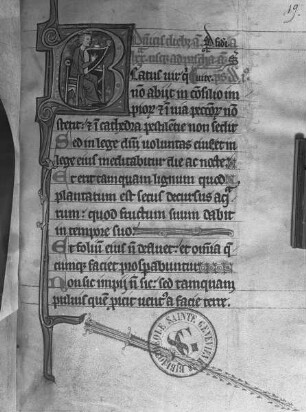 19.
Beatus vir q̄
nō abiit in cōsilio im
pior̄ ⁊ in uia peccator̄ nō
stetit: ⁊ ī cathedra pestilētie non sedit
Sed in lege dn̄i uoluntas eius: et in
lege eius meditabitur die ac nocte.
Et erit tamquam lignum quod
plantatum est secus decursus aq̄
rum: quod fructum suum dabit
in tempore suo.
Et folium eius n̄ defluet: et omīa q̄
cumq̄ faciet prosperabuntur.
Non sic impii n̄ sic: sed tamquam
puluis quē proicit uent᷒ a facie terre.
BIBLIOTHEQUE SAINTE GENEVIEVE
SG